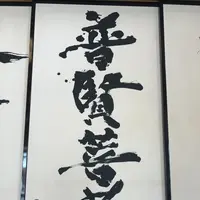 普賢菩